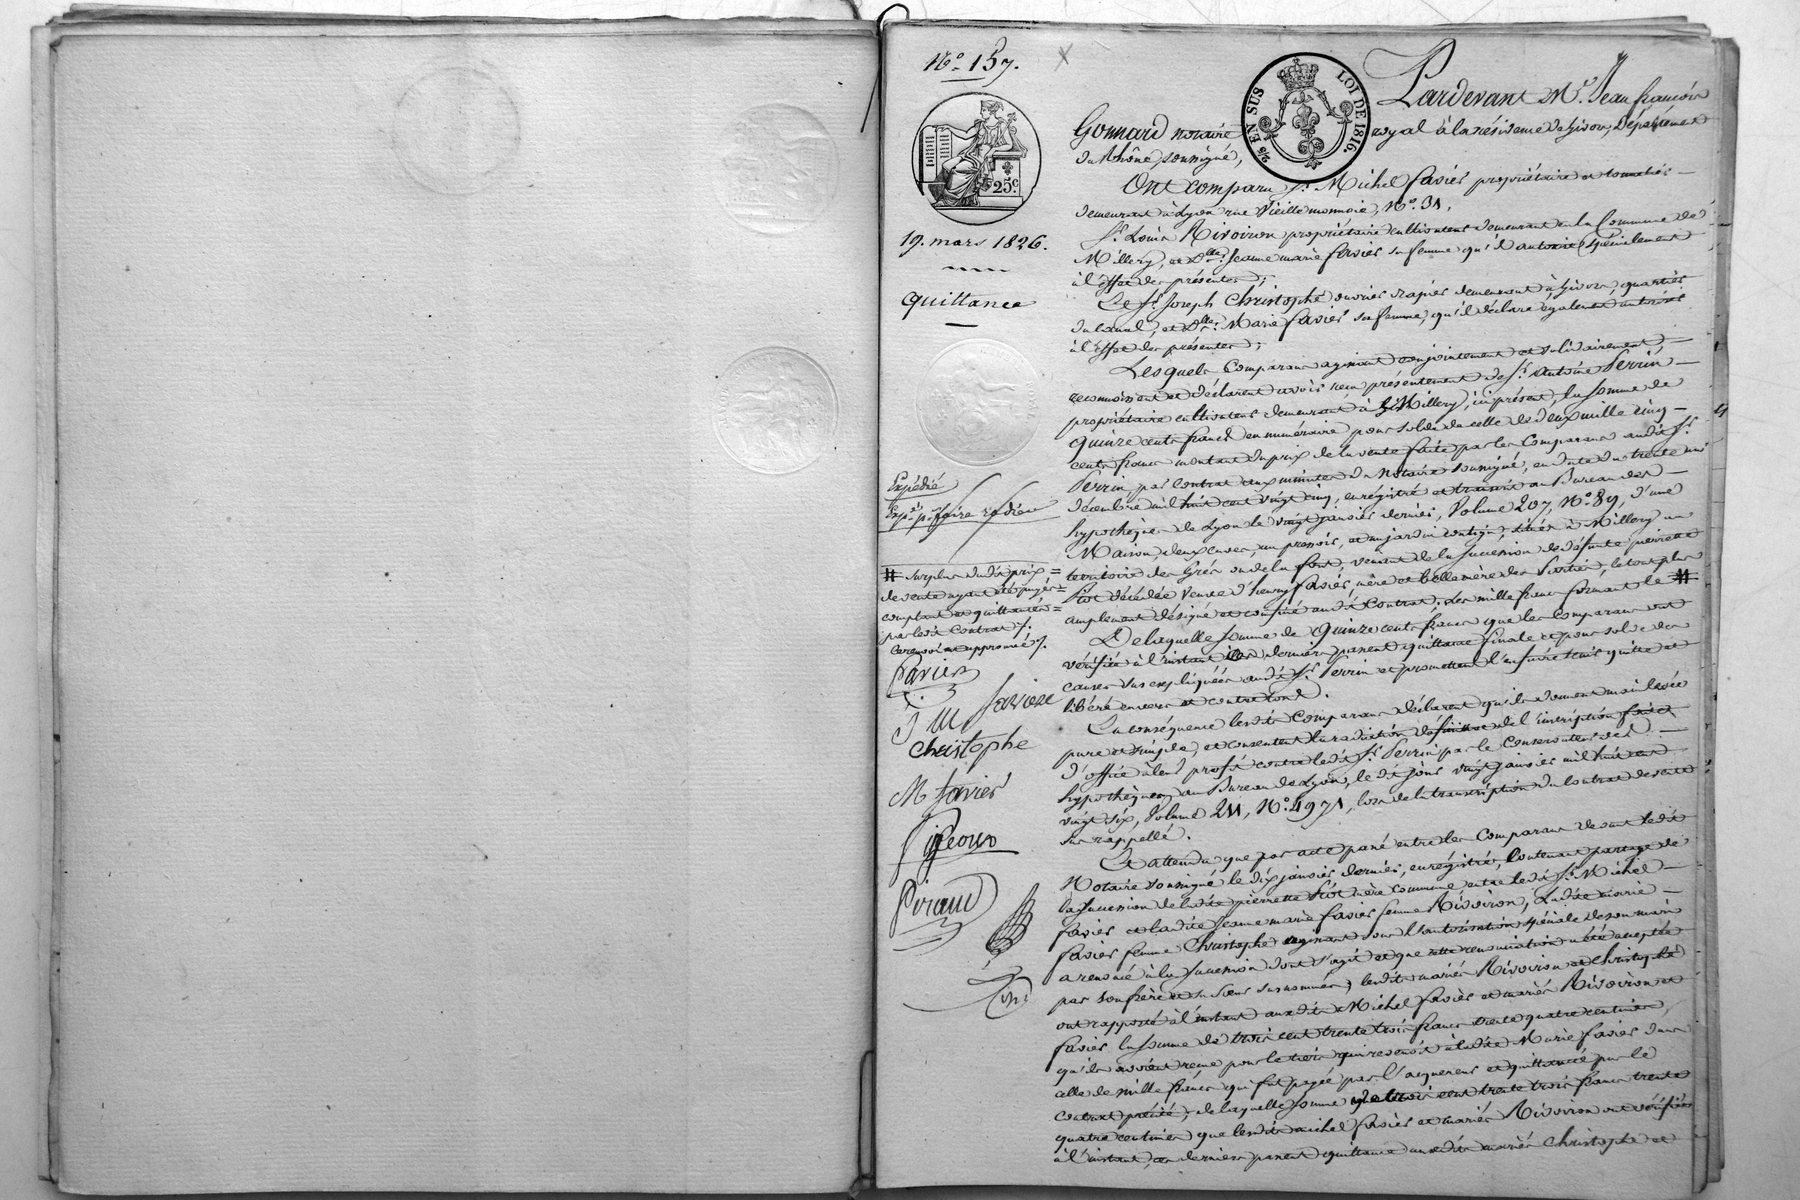 N.o 137.
25.c
19. mars 1826.
quittance
Expédié
Exp.é p.r faire radier
# Surplus dudit prix =
de vente ayant été payés =
comptant et quittancés =
par ledit Contrat /.
ce renvoi approuvé /.
favier
J M favier
Christophe
M favier
Pigeoux
Piraud
2/5 EN SUS
LOI DE 1816.
Pardevant M.e Jean françois
Gonnard notaire royal à la résidence de Givors, Département
du Rhône, soussigné,
Ont comparu S.r Michel favier propriétaire et tonnelier
demeurant à Lyon rue Vieille monnoie, N.o 31,
S.r Louis Rivoiron propriétaire cultivateur demeurant en la Commune de
Millery, et D.lle Jeanne marie favier sa femme qu'il autorise spécialement
à l'effet des présentes;
Le S.r Joseph Christophe ouvrier demeurant à Givors, quartier
du canal, et D.lle Marie favier sa femme, qu'il déclare également autoriser
à l'effet des présentes;
Lesquels Comparans agissant conjointement et solidairement,
reconnoissent et déclarent avoir reçu présentement de S.r Antoine Perrin
propriétaire cultivateur demeurant à Millery, ici présent, la somme de
quinze cents francs en numéraire pour solde de celle de deux mille cinq
cents francs montant du prix de la vente faite par les Comparans audit S.r
Perrin par Contrat aux minutes du Notaire soussigné, en date du trente un
décembre mil huit cent vingt cinq, enregistré et transcrit au Bureau des
hypothèques de Lyon le vingt janvier dernier, Volume 207, N.o 89, d'une
Maison, deux cuves, un pressoir, et un jardin contigu, situés à Millery au
territoire des Grés ou de la font, venant de la succession de défunte pierrette
Piot décédée veuve d'henry favier, mère et belle mère des parties, le tout plus
amplement désigné et confiné audit Contrat; les mille francs formant le #
De laquelle somme de quinze cents francs que les Comparans ont
vérifiée à l'instant ces derniers passent quittance finale et pour solde des
causes sus expliquées audit S.r Perrin et promettent l'en faire tenir quitte et
libéré envers et contre tous.
En conséquence lesdits Comparans déclarent qu'ils donnent main levée
pure et simple, et consentent la radiation définitive de l'inscription faite
d'office à leur profit contre ledit S.r Perrin par le Conservateur des
hypothèques au Bureau de Lyon, le dit jour vingt janvier mil huit cent
vingt six, Volume 211, N.o 4971, lors de la transcription du Contrat de vente
sus rappellé.
Et attendu que par acte passé entre les Comparans devant ledit
Notaire soussigné le dix janvier dernier, enregistré, Contenant partage de
la succession de ladite pierrette Piot mère commune entre ledit S.r Michel
favier et ladite Jeanne marie favier femme Rivoiron, Ladite marie
favier femme Christophe agissant sous l'autorisation spéciale de son mari
a renoncé à la succession dont s'agit et que cette renonciation a été acceptée
par son frère et sa sœur susnommés, lesdits mariés Rivoiron et Christophe
ont rapporté à l'instant auxdits Michel favier et mariés Rivoiron et
favier la somme de trois cent trente trois francs trente quatre centimes,
qu'ils avoient reçue pour le tiers qui revenoit à ladite Marie favier dans
celle de mille francs qui fut payée par l'acquereur et quittancée par le
Contrat précité, de laquelle somme de trois cent trente trois francs trente
quatre centimes que lesdits michel favier et mariés Rivoiron ont vérifiée
à l'instant, ces derniers passent quittance auxdits mariés Christophe et